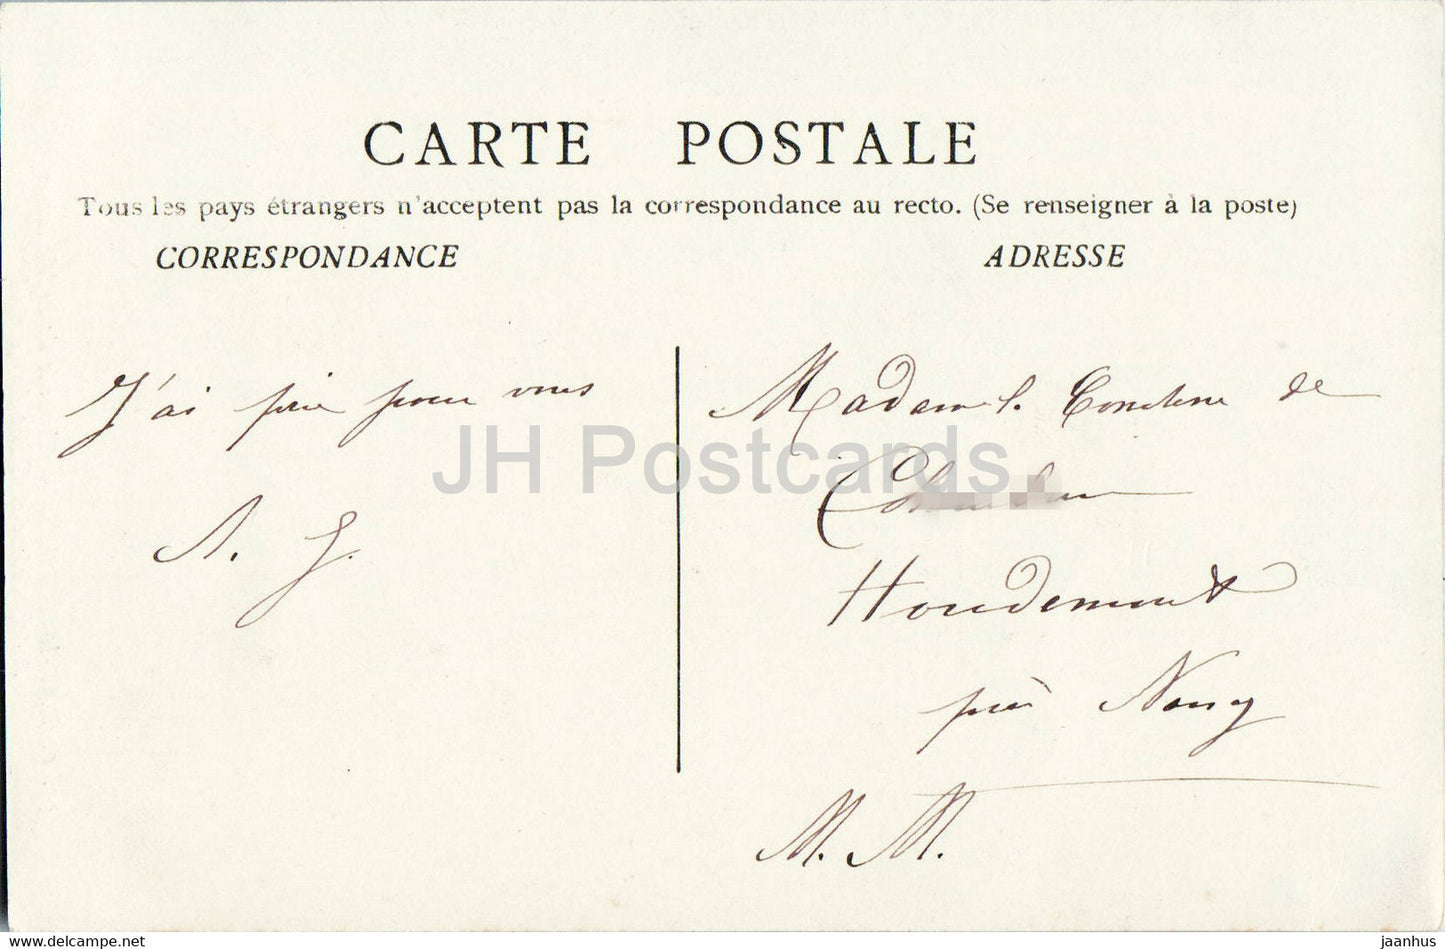 CARTE POSTALE
Tous les pays étrangers n'acceptent pas la correspondance au recto. (Se renseigner à la poste)
CORRESPONDANCE
ADRESSE
J'ai prié pour vous
A. J.
Madame la Comtesse de
Houdemont
près Nancy
M. M.
JH Postcards
www.delcampe.net
jaanhus